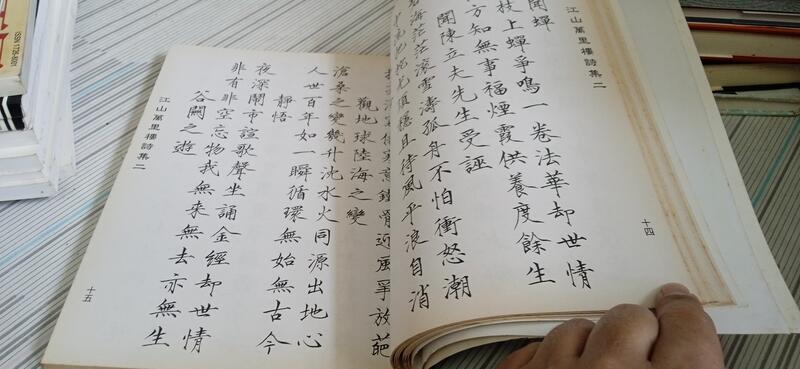 江山萬里樓詩集二
十四
聞蟬
枝上蟬爭鳴一卷法華却世情
方知無事福煙霞供養度餘生
聞陳立夫先生受誣
海茫茫滾雪濤孤身不怕衝怒潮
穩且待風平浪自消
風爭放葩
觀地球陸海之變
滄桑之變幾升沈水火同源出地心
人世百年如一瞬循環無始無古今
靜悟
夜深鬧市諠歌聲坐誦金經却世情
非有非空忘物我無來無去亦無生
谷關之遊
江山萬里樓詩集二
十五